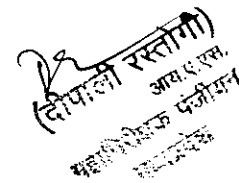 (दीपाली रस्तोगी)
आय.ए.एस.
महानिरीक्षक पंजीयन